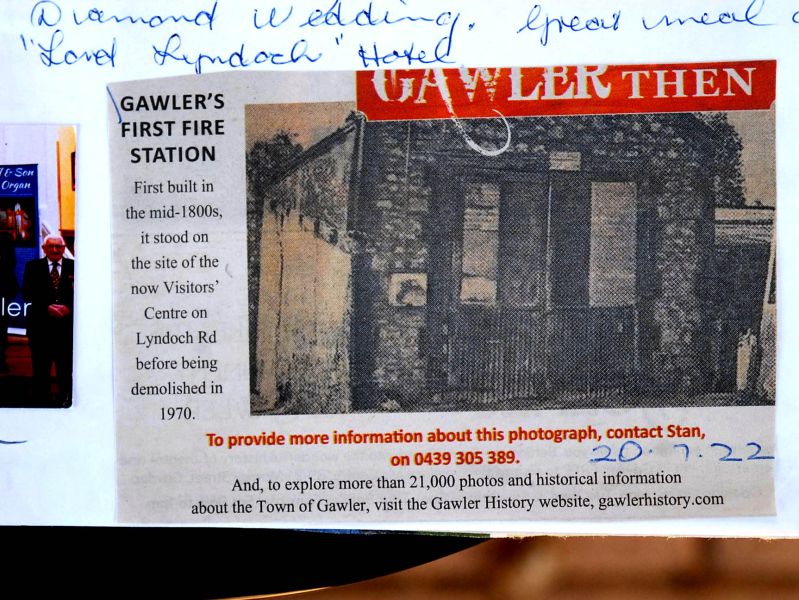 Diamond Wedding. Great meal
"Lord Lyndoch" Hotel
GAWLER THEN
GAWLER'S
FIRST FIRE
STATION
First built in
the mid-1800s,
it stood on
the site of the
now Visitors'
Centre on
Lyndoch Rd
before being
demolished in
1970.
& Son
Organ
ler
To provide more information about this photograph, contact Stan,
on 0439 305 389.
20.7.22
And, to explore more than 21,000 photos and historical information
about the Town of Gawler, visit the Gawler History website, gawlerhistory.com